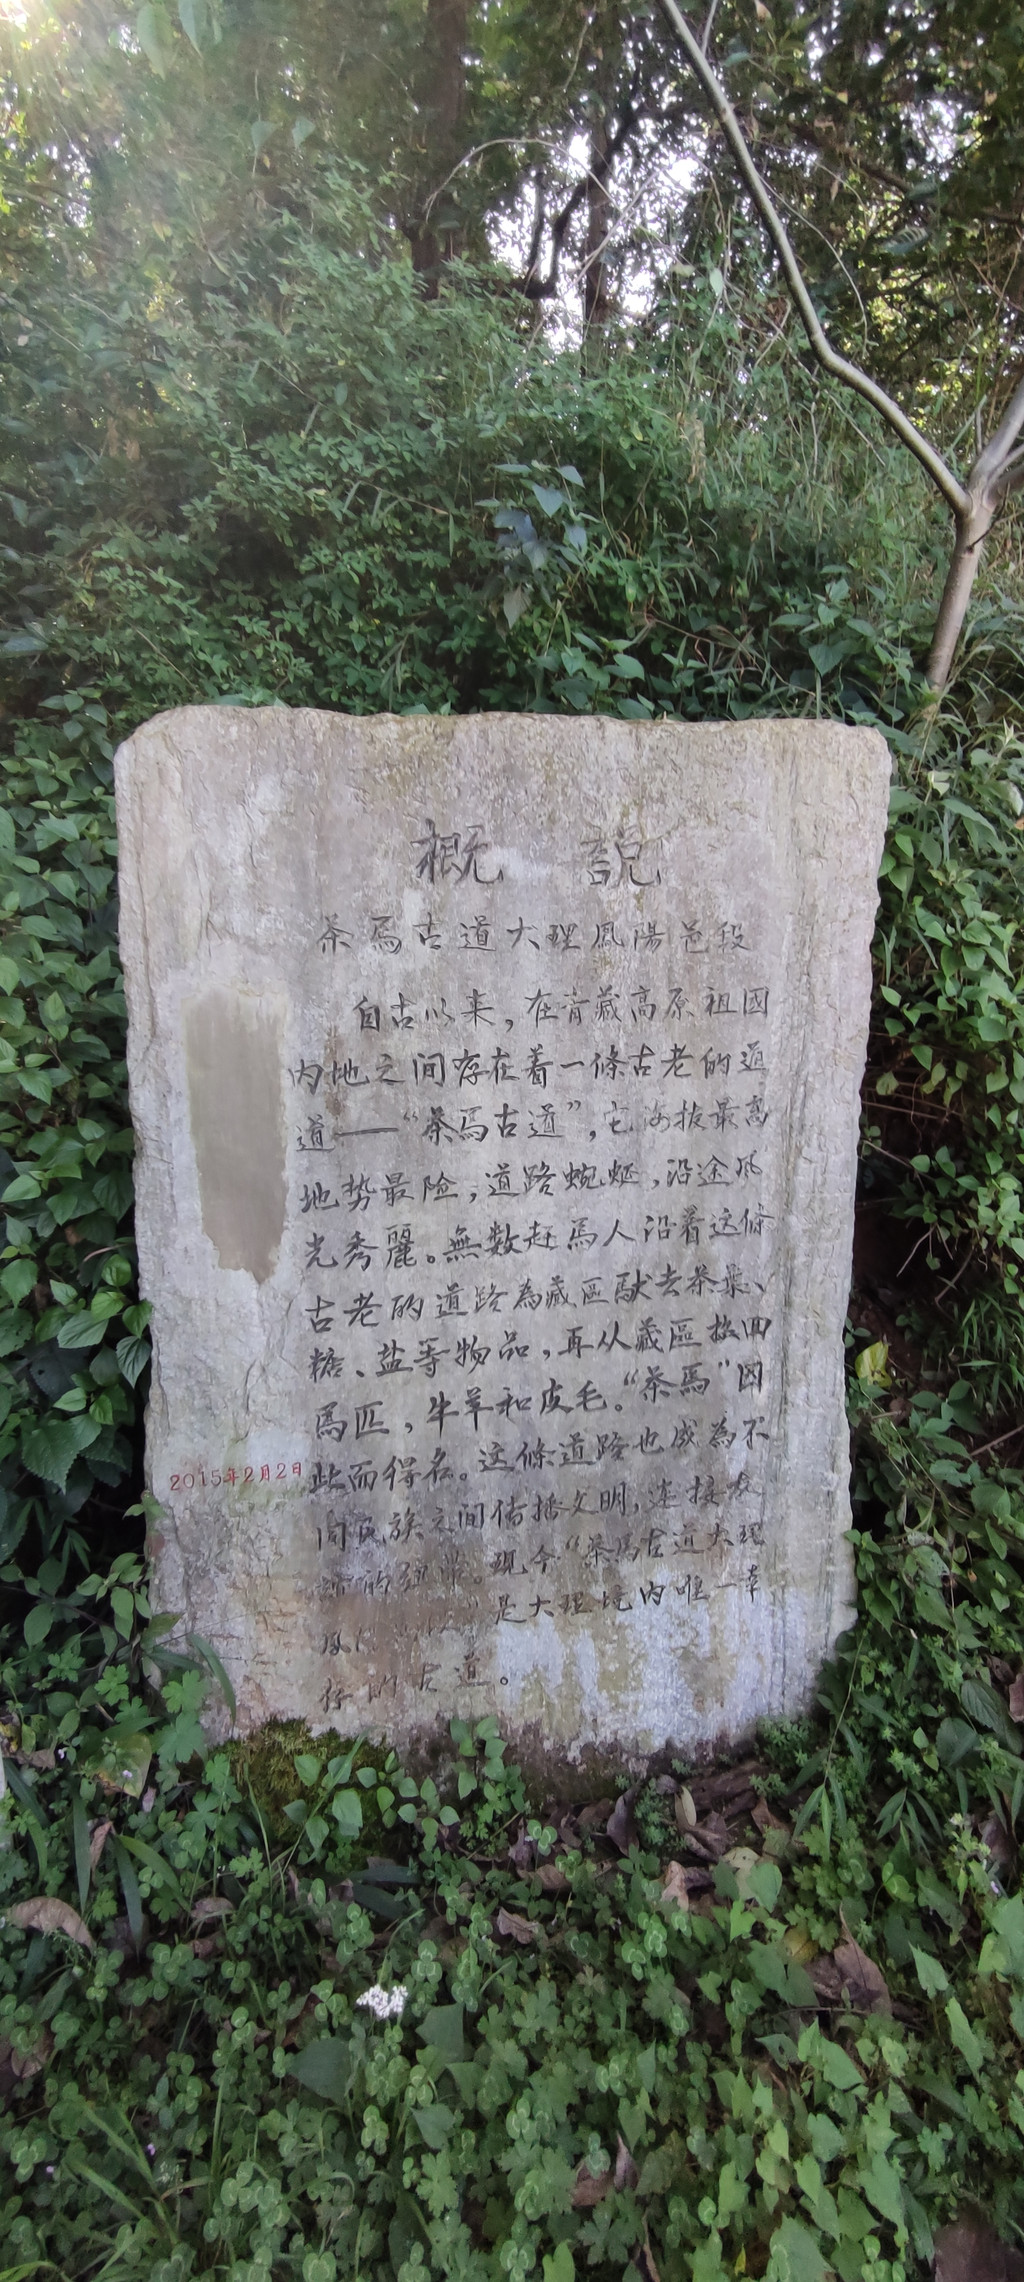 概 説
茶馬古道大理鳳陽邑段
自古以来，在青藏高原祖國
内地之间存在着一條古老的通
道——“茶馬古道”，它海拔最高
地势最险，道路蜿蜒，沿途风
光秀麗。無数赶馬人沿着这條
古老的道路為藏區馱去茶葉、
糖、盐等物品，再从藏區换回
馬匹，牛羊和皮毛。“茶馬”因
此而得名。这條道路也成為不
同民族之间传播文明，连接友
的纽带。现今“茶馬古道大理
是大理境内唯一幸
存的古道。
2015年2月2日